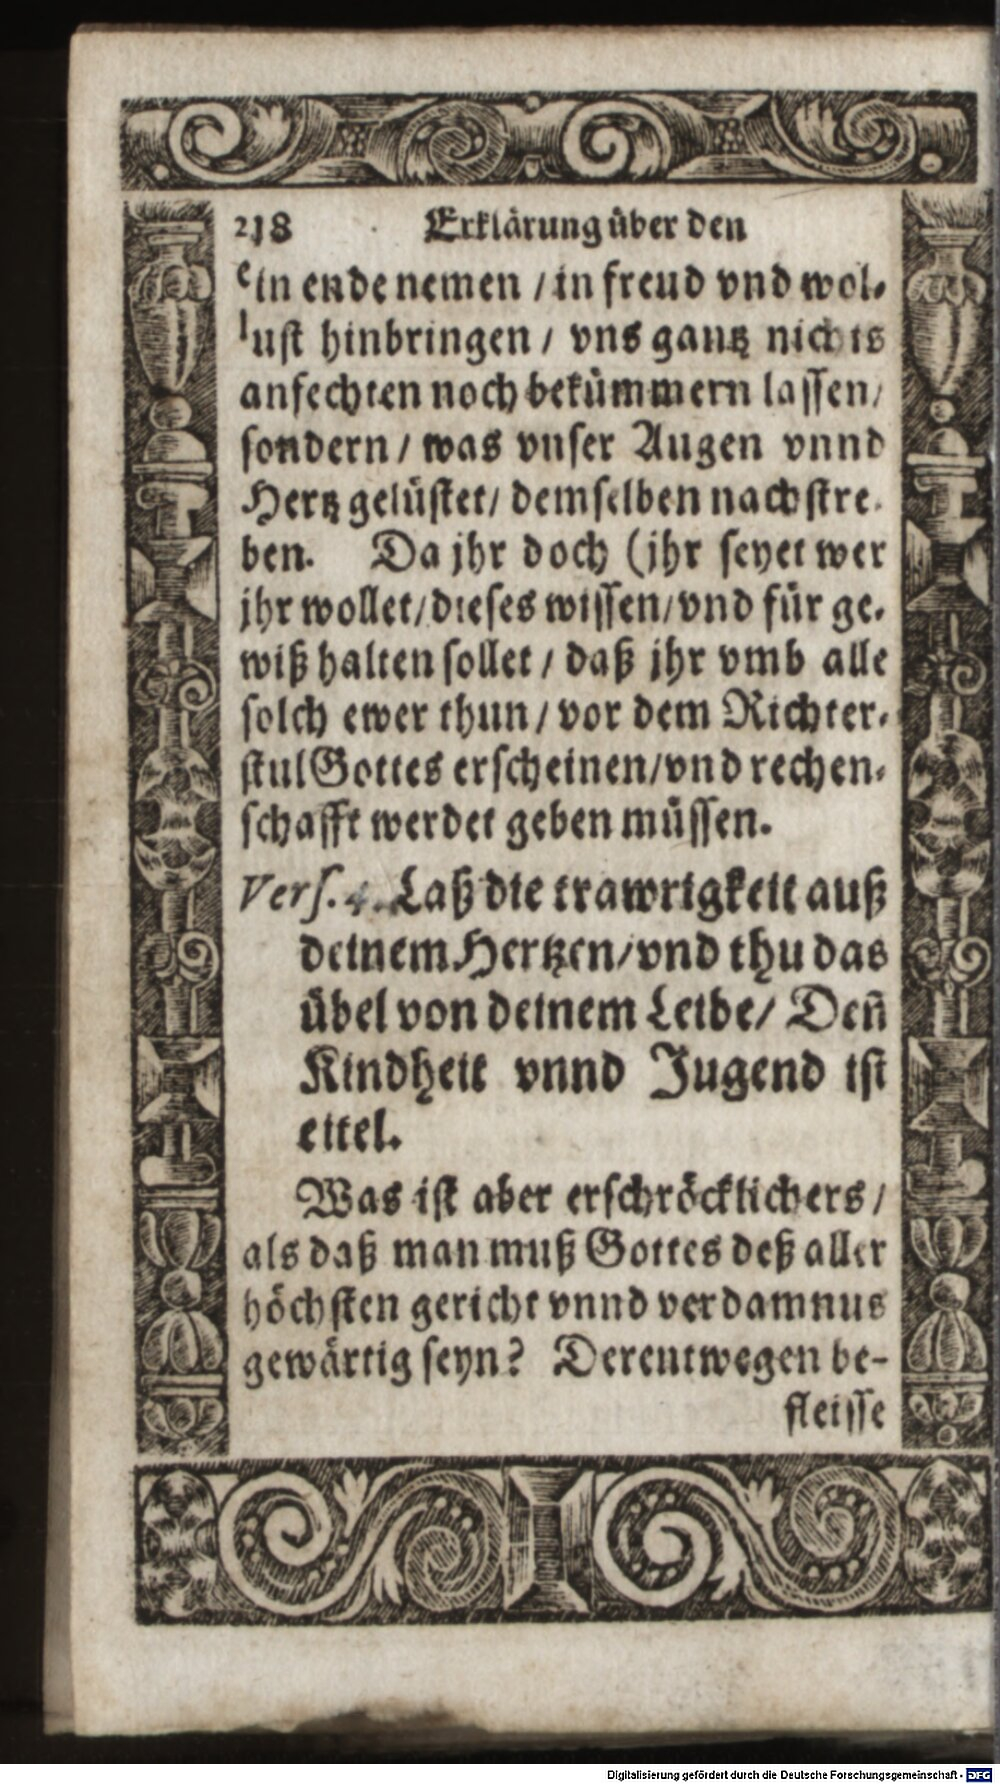 218 Erklärung über den
ein ende nemen / in freud vnd wol-
lust hinbringen / vns gantz nichts
anfechten noch bekümmern lassen /
sondern / was vnser Augen vnnd
Hertz gelüstet / demselben nachstre-
ben. Da jhr doch (jhr seyet wer
jhr wollet / dieses wissen / vnd für ge-
wiß halten sollet / daß jhr vmb alle
solch ewer thun / vor dem Richter-
stul Gottes erscheinen / vnd rechen-
schafft werdet geben müssen.
Vers. 4. Laß die trawrigkeit auß
deinem Hertzen / vnd thu das
übel von deinem Leibe / Deñ
Kindheit vnnd Jugend ist
eitel.
Was ist aber erschröcklichers /
als daß man muß Gottes deß aller
höchsten gericht vnnd verdamnus
gewärtig seyn? Derentwegen be-
fleisse
Digitalisierung gefördert durch die Deutsche Forschungsgemeinschaft - DFG